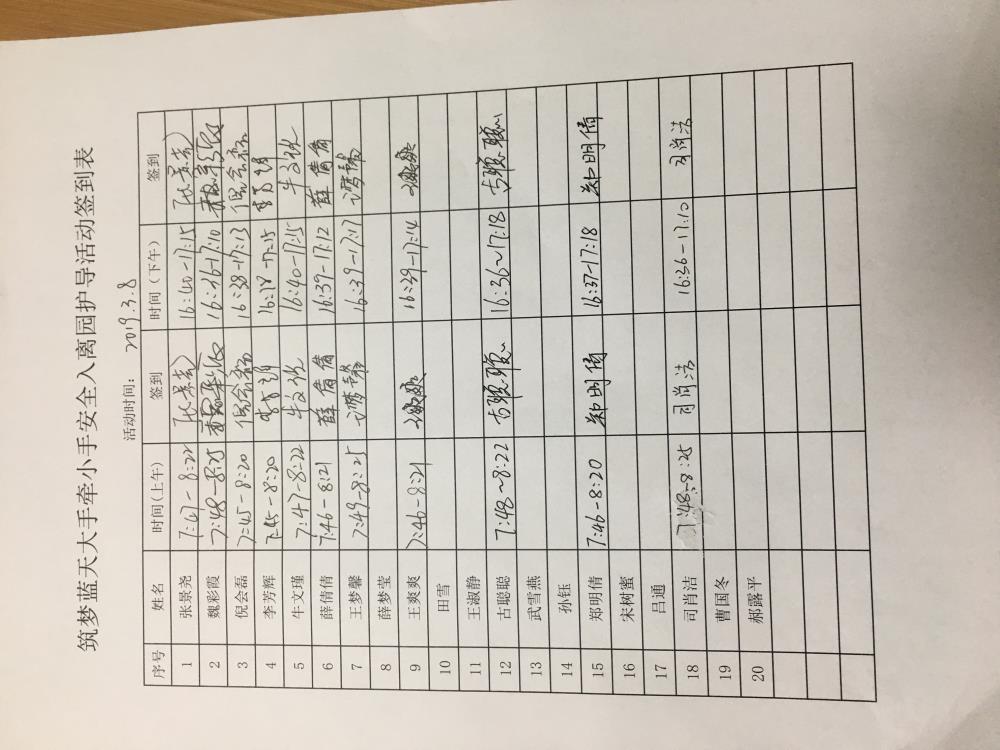 筑梦蓝天大手牵小手安全入离园护导活动签到表
活动时间: 2019.3.8
序号 姓名 时间(上午) 签到 时间(下午) 签到
1 张景尧 7:47-8:22 张景尧 16:40-17:15 张景尧
2 魏彩霞 7:48-8:25 魏彩霞 16:36-17:10 魏彩霞
3 倪会磊 7:45-8:20 倪会磊 16:38-17:13 倪会磊
4 李芳辉 7:45-8:20 李芳辉 16:38-17:15 李芳辉
5 牛文瑾 7:47-8:22 牛文瑾 16:40-17:15 牛文瑾
6 薛倩倩 7:46-8:21 薛倩倩 16:39-17:12 薛倩倩
7 王梦馨 7:49-8:25 16:39-17:17
8 薛梦莹
9 王爽爽 7:46-8:21 16:39-17:14
10 田雪
11 王淑静
12 古聪聪 7:48~8:22 古聪聪 16:36~17:18 古聪聪
13 武雪燕
14 孙钰
15 郑明倩 7:46-8:20 郑明倩 16:37-17:18 郑明倩
16 宋树蜜
17 吕通
18 司肖洁 7:48-8:25 司肖洁 16:36-17:10 司肖洁
19 曹国冬
20 郝露平